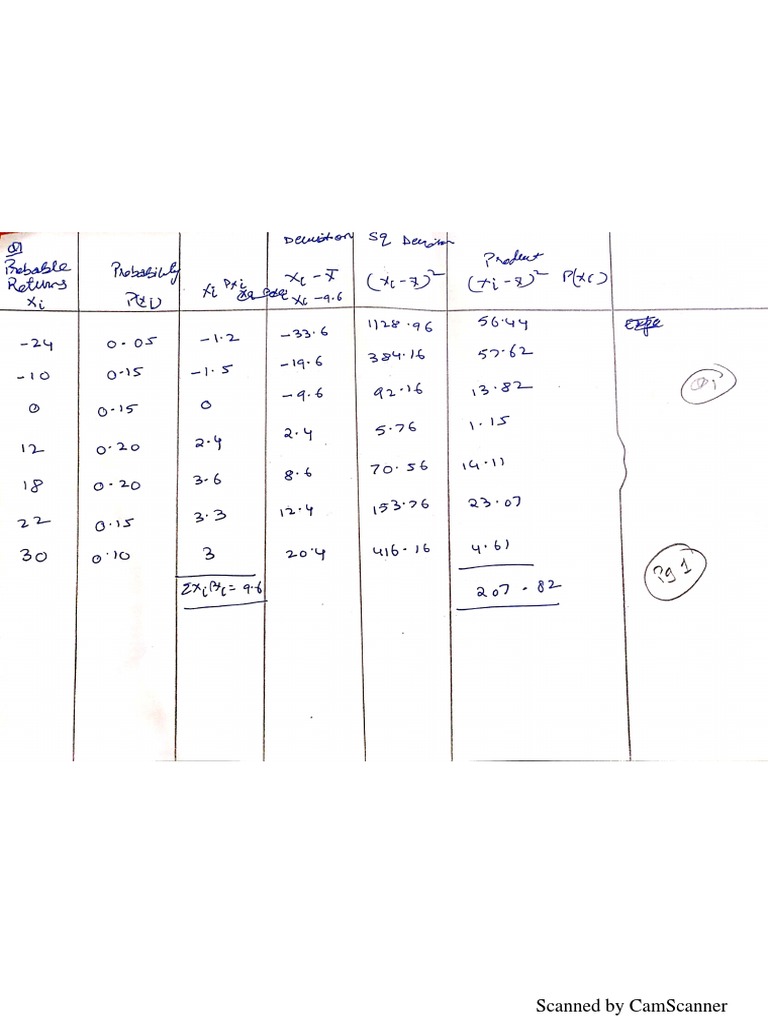 Q1
Probable Returns xi | Probability P(xi) | xi Pxi | Deviation xi - x̄ xi - 9.6 | Sq Deviation (xi - x̄)² | Product (xi - x̄)² P(xi)
-24 | 0.05 | -1.2 | -33.6 | 1128.96 | 56.44
-10 | 0.15 | -1.5 | -19.6 | 384.16 | 57.62
0 | 0.15 | 0 | -9.6 | 92.16 | 13.82
12 | 0.20 | 2.4 | 2.4 | 5.76 | 1.15
18 | 0.20 | 3.6 | 8.6 | 70.56 | 14.11
22 | 0.15 | 3.3 | 12.4 | 153.76 | 23.07
30 | 0.10 | 3 | 20.4 | 416.16 | 4.61
Σxi Pxi = 9.6 | 207.82
Pg 1
Scanned by CamScanner